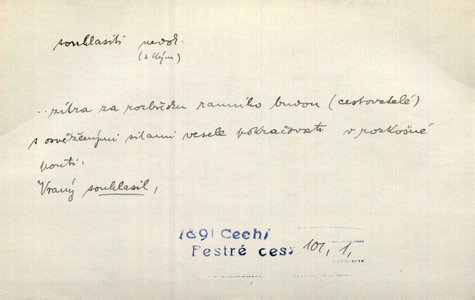 souhlasiti nedok.
(s kým)
.. zítra za rozbřesku ranního budou (cestovatelé)
s osvěženými silami vesele pokračovati v rozkošné
pouti.
Vraný souhlasil,
1891 Čech,
Pestré ces. 101, 1,